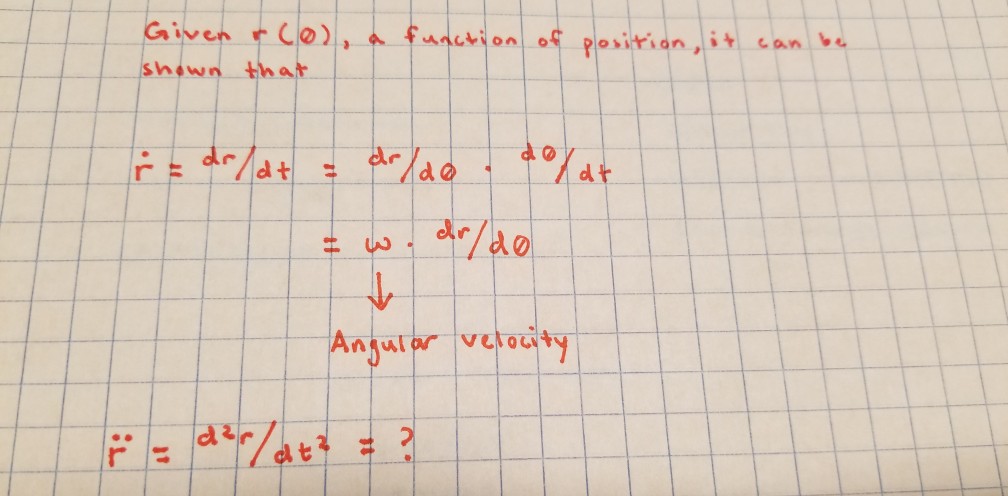 Given r(Ø), a function of position, it can be
shown that
ṙ = dr/dt = dr/dØ · dØ/dt
= ω · dr/dØ
↓
Angular velocity
r̈ = d²r/dt² = ?